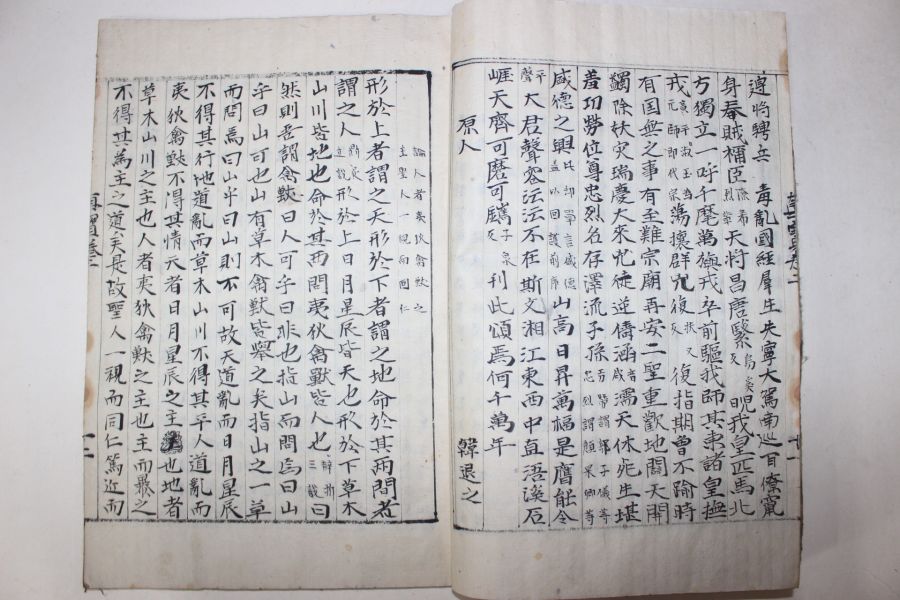 遵將騁兵 毒亂國經羣生失寧大駕南巡百僚竄
身奉賊稱臣 希烈等 天將昌唐繄烏奚反睨我皇匹馬北
方獨立一呼千麾萬旟戎卒前驅我師其東諸皇撫
戎元師即代宗蕩攘群兇復扶又反復指期曾不踰時
有国無之事有至難宗廟再安二聖重歡地闢天開
蠲除妖灾瑞慶大來兇徒逆儔涵音咸濡天休死生堪
羞功勞位尊忠烈名存澤流子孫功勞謂郭子儀等忠烈謂顔杲卿等
盛德之興此却單言盛德盖以回護前序山高日昇萬福是膺能令
平聲大君聲容沄沄不在斯文湘江東西中直浯溪石
崕天齊可磨可鐫子泉反刊此頌焉何千萬年
原人 韓退之
論人者夷狄禽獸之主聖人一視而同仁
形於上者謂之天形於下者謂之地命於其兩間者
謂之人立說形於上日月星辰皆天也形於下草木
山川皆地也命於其兩間夷狄禽獸皆人也三截曰
然則吾謂禽獸曰人可乎曰非也指山而問焉曰山
乎曰山可也山有草木禽獸皆擧之矣指山之一草
而問焉曰山乎曰山則不可故天道亂而日月星辰
不得其行地道亂而草木山川不得其平人道亂而
夷狄禽獸不得其情天者日月星辰之主也地者
草木山川之主也人者夷狄禽獸之主也主而暴之
不得其爲主之道矣是故聖人一視而同仁篤近而